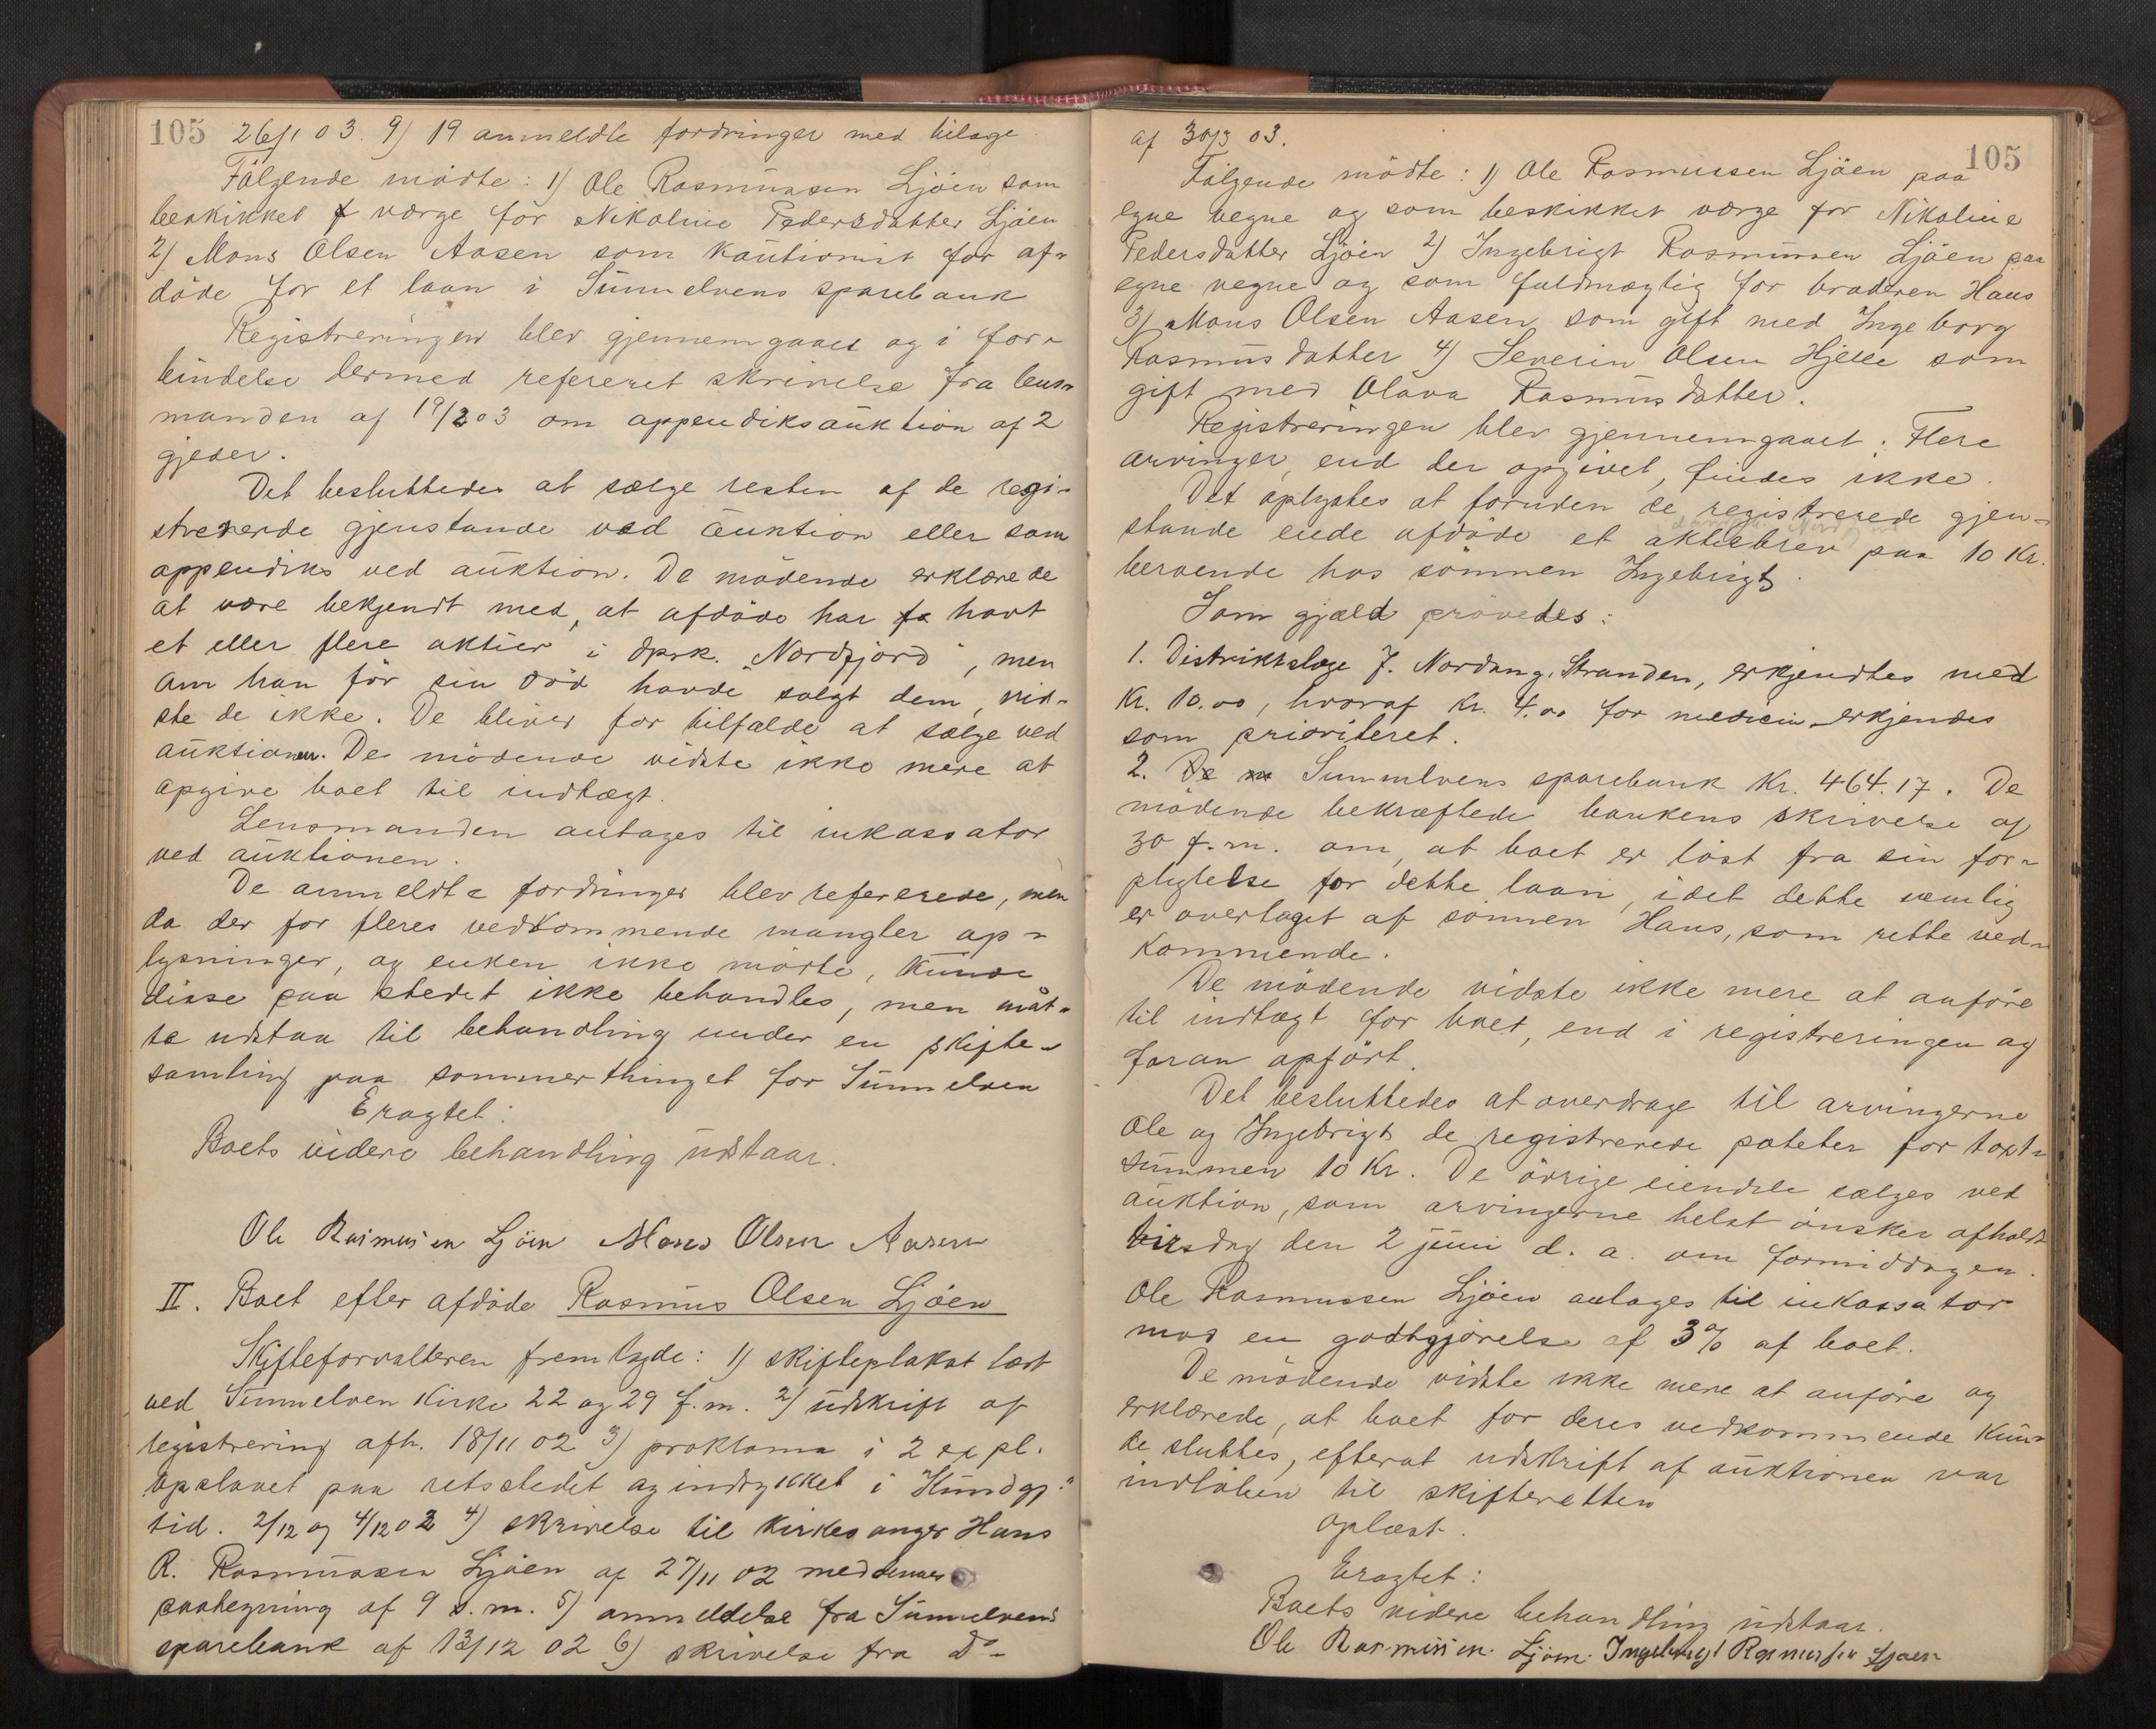 105 26/1 03. 9) 19 anmeldte fordringer med bilage
Følgende mödte: 1) Ole Rasmussen Ljöen som
beskikket værge for Nikoline Pedersdatter Ljöen
2) Mons Olsen Aasen som kautionist for af-
döde for et laan i Sunnelvens sparebank
Registreringen blev gjennemgaaet og i for-
bindelse dermed refereret skrivelse fra lens-
manden af 19/2 03 om appendiksauktion af 2
gjeder.
Det besluttedes at sælge resten af de regi-
strerede gjenstande ved auktion eller som
appendiks ved auktion. De mödende erklærede
at være bekjendt med, at afdöde har havt
et eller flere aktier i dpsk. "Nordfjord", men
om han för sin död havde solgt dem, vid-
ste de ikke. De bliver for tilfælde at sælge ved
auktionen. De mödende vidste ikke mere at
opgive boet til indtægt.
Lensmanden antages til inkassator
ved auktionen.
De anmeldte fordringer blev refererede, men
da der for fleres vedkommende mangler op-
lysninger, og enken ikke mödte, kunde
disse paa stedet ikke behandles, men maat-
te udstaa til behandling under en skifte-
samling paa sommerthinget for Sunnelven
Eragtet:
Boets videre behandling udstaar.
Ole Rasmusen Ljöen Mons Olsen Aasen
II. Boet efter afdöde Rasmus Olsen Ljöen
Skifteforvalteren fremlagde: 1) skifteplakat læst
ved Sunnelven kirke 22 og 29 f.m. 2) udskrift af
registrering afh. 18/11 02 3) proklama i 2 expl.
opslaaet paa retsstedet og indrykket i "Kundgj."
tid. 2/12 og 4/12 02 4) skrivelse til kirkesanger Hans
R. Rasmussen Ljöen af 27/11 02 med dennes
paategning af 9 s.m. 5) anmeldelse fra Sunnelvens
sparebank af 13/12 02 6) skrivelse fra do
105
af 30/3 03.
Følgende mödte: 1) Ole Rasmussen Ljöen paa
egne vegne og som beskikket værge for Nikoline
Pedersdatter Ljöen 2) Ingebrigt Rasmussen Ljöen paa
egne vegne og som fuldmægtig for broderen Hans
3) Mons Olsen Aasen som gift med Ingeborg
Rasmusdatter 4) Severin Olsen Hjelle som
gift med Olava Rasmusdatter.
Registreringen blev gjennemgaaet. Flere
arvinger, end der opgivet, findes ikke.
Det oplystes at foruden de registrerede gjen-
stande eiede afdöde et aktiebrev paa 10 Kr.
beroende hos sönnen Ingebrigt.
Som gjæld prövedes:
1. Distriktslæge J. Nordang, Stranden, erkjendtes med
Kr. 10.00, hvoraf Kr. 4.00 for medicin erkjendes
som prioriteret.
2. Sunnelvens sparebank Kr. 464.17. De
mödende bekræftede bankens skrivelse af
30 f.m. om, at boet er löst fra sin for-
pligtelse for dette laan, idet dette nemlig
er overtaget af sönnen Hans, som rette ved-
kommende.
De mödende vidste ikke mere at anföre
til indtægt for boet, end i registreringen og
foran opfört.
Det besluttedes at overdrage til arvingerne
Ole og Ingebrigt de registrerede poteter for taxt-
summen 10 Kr. De övrige eiendele sælges ved
auktion, som arvingerne helst önsker afholdt
tirsdag den 2 juni d. a. om formiddagen.
Ole Rasmussen Ljöen antages til inkassator
mod en godtgjörelse af 3% af boet.
De mödende vidste ikke mere at anföre og
erklærede, at boet for deres vedkommende kun-
de sluttes, efterat udskrift af auktionen var
indlöben til skifteretten
Oplæst.
Eragtet:
Boets videre behandling udstaar.
Ole Rasmusen Ljöen. Ingebrigt Rasmusen Ljöen